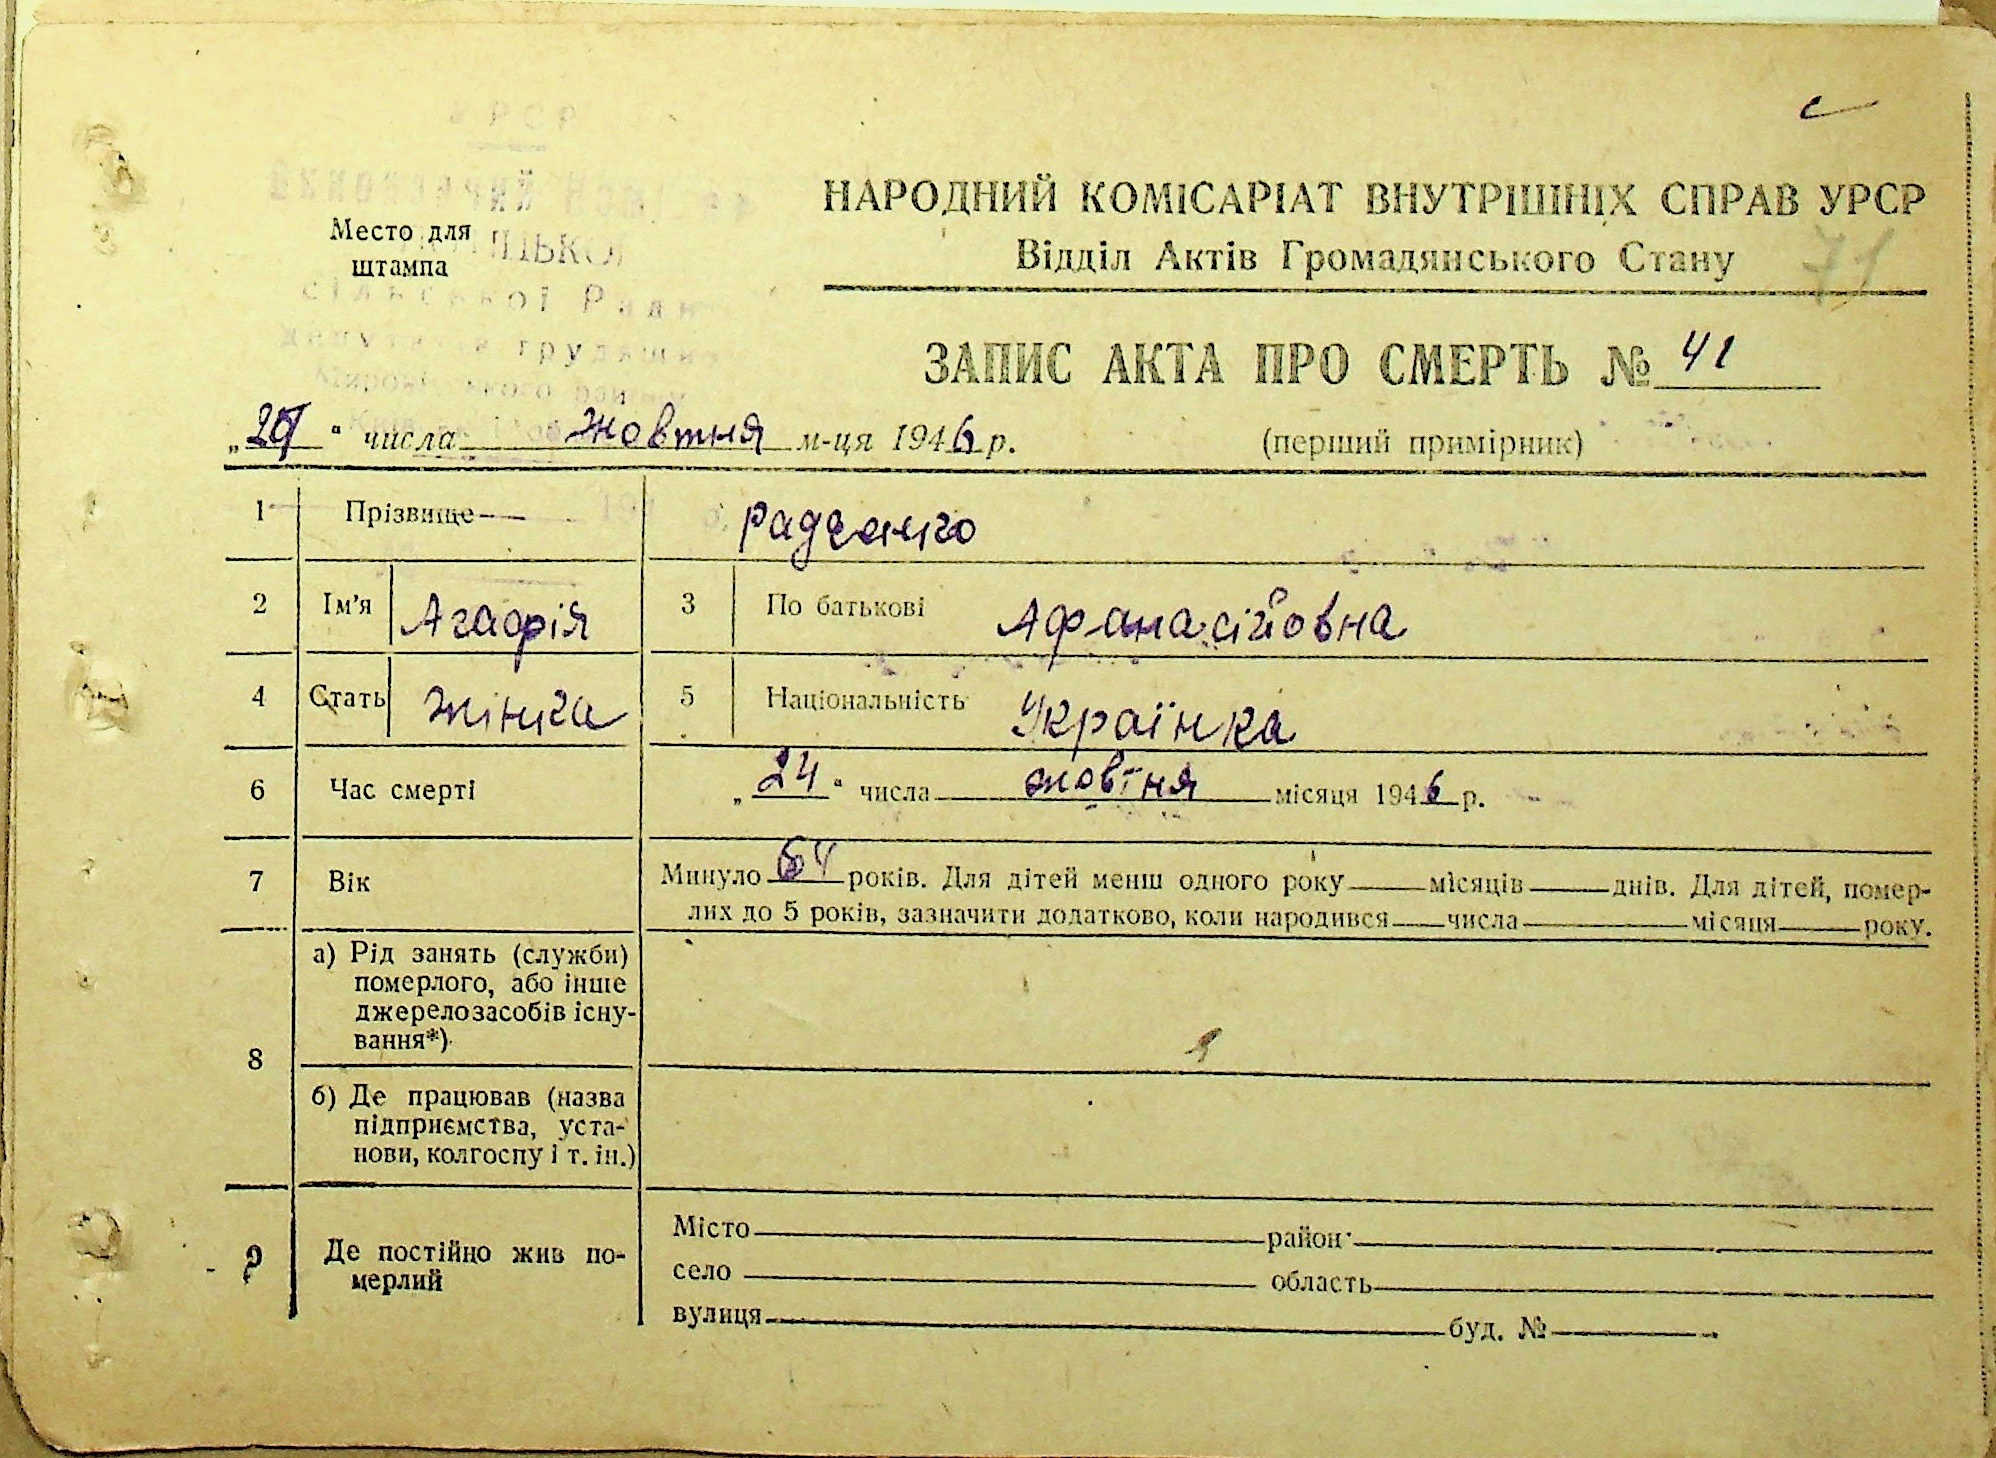 УРСР
Место для
штампа
сільської Ради
НАРОДНИЙ КОМІСАРІАТ ВНУТРІШНІХ СПРАВ УРСР
Відділ Актів Громадянського Стану
71
ЗАПИС АКТА ПРО СМЕРТЬ № 41
" " числа жовтня м-ця 1946 р. (перший примірник)
1 Прізвище Радченко
2 Ім'я Агафія 3 По батькові Афанасійовна
4 Стать жінка 5 Національність Українка
6 Час смерті „24" числа жовтня місяця 1946 р.
7 Вік Минуло 64 років. Для дітей менш одного року місяців днів. Для дітей, помер-
лих до 5 років, зазначити додатково, коли народився числа місяця року.
8 а) Рід занять (служби)
померлого, або інше
джерело засобів існу-
вання*)
б) Де працював (назва
підприємства, уста-
нови, колгоспу і т. ін.)
9 Де постійно жив по-
мерлий
Місто район
село область
вулиця буд. №